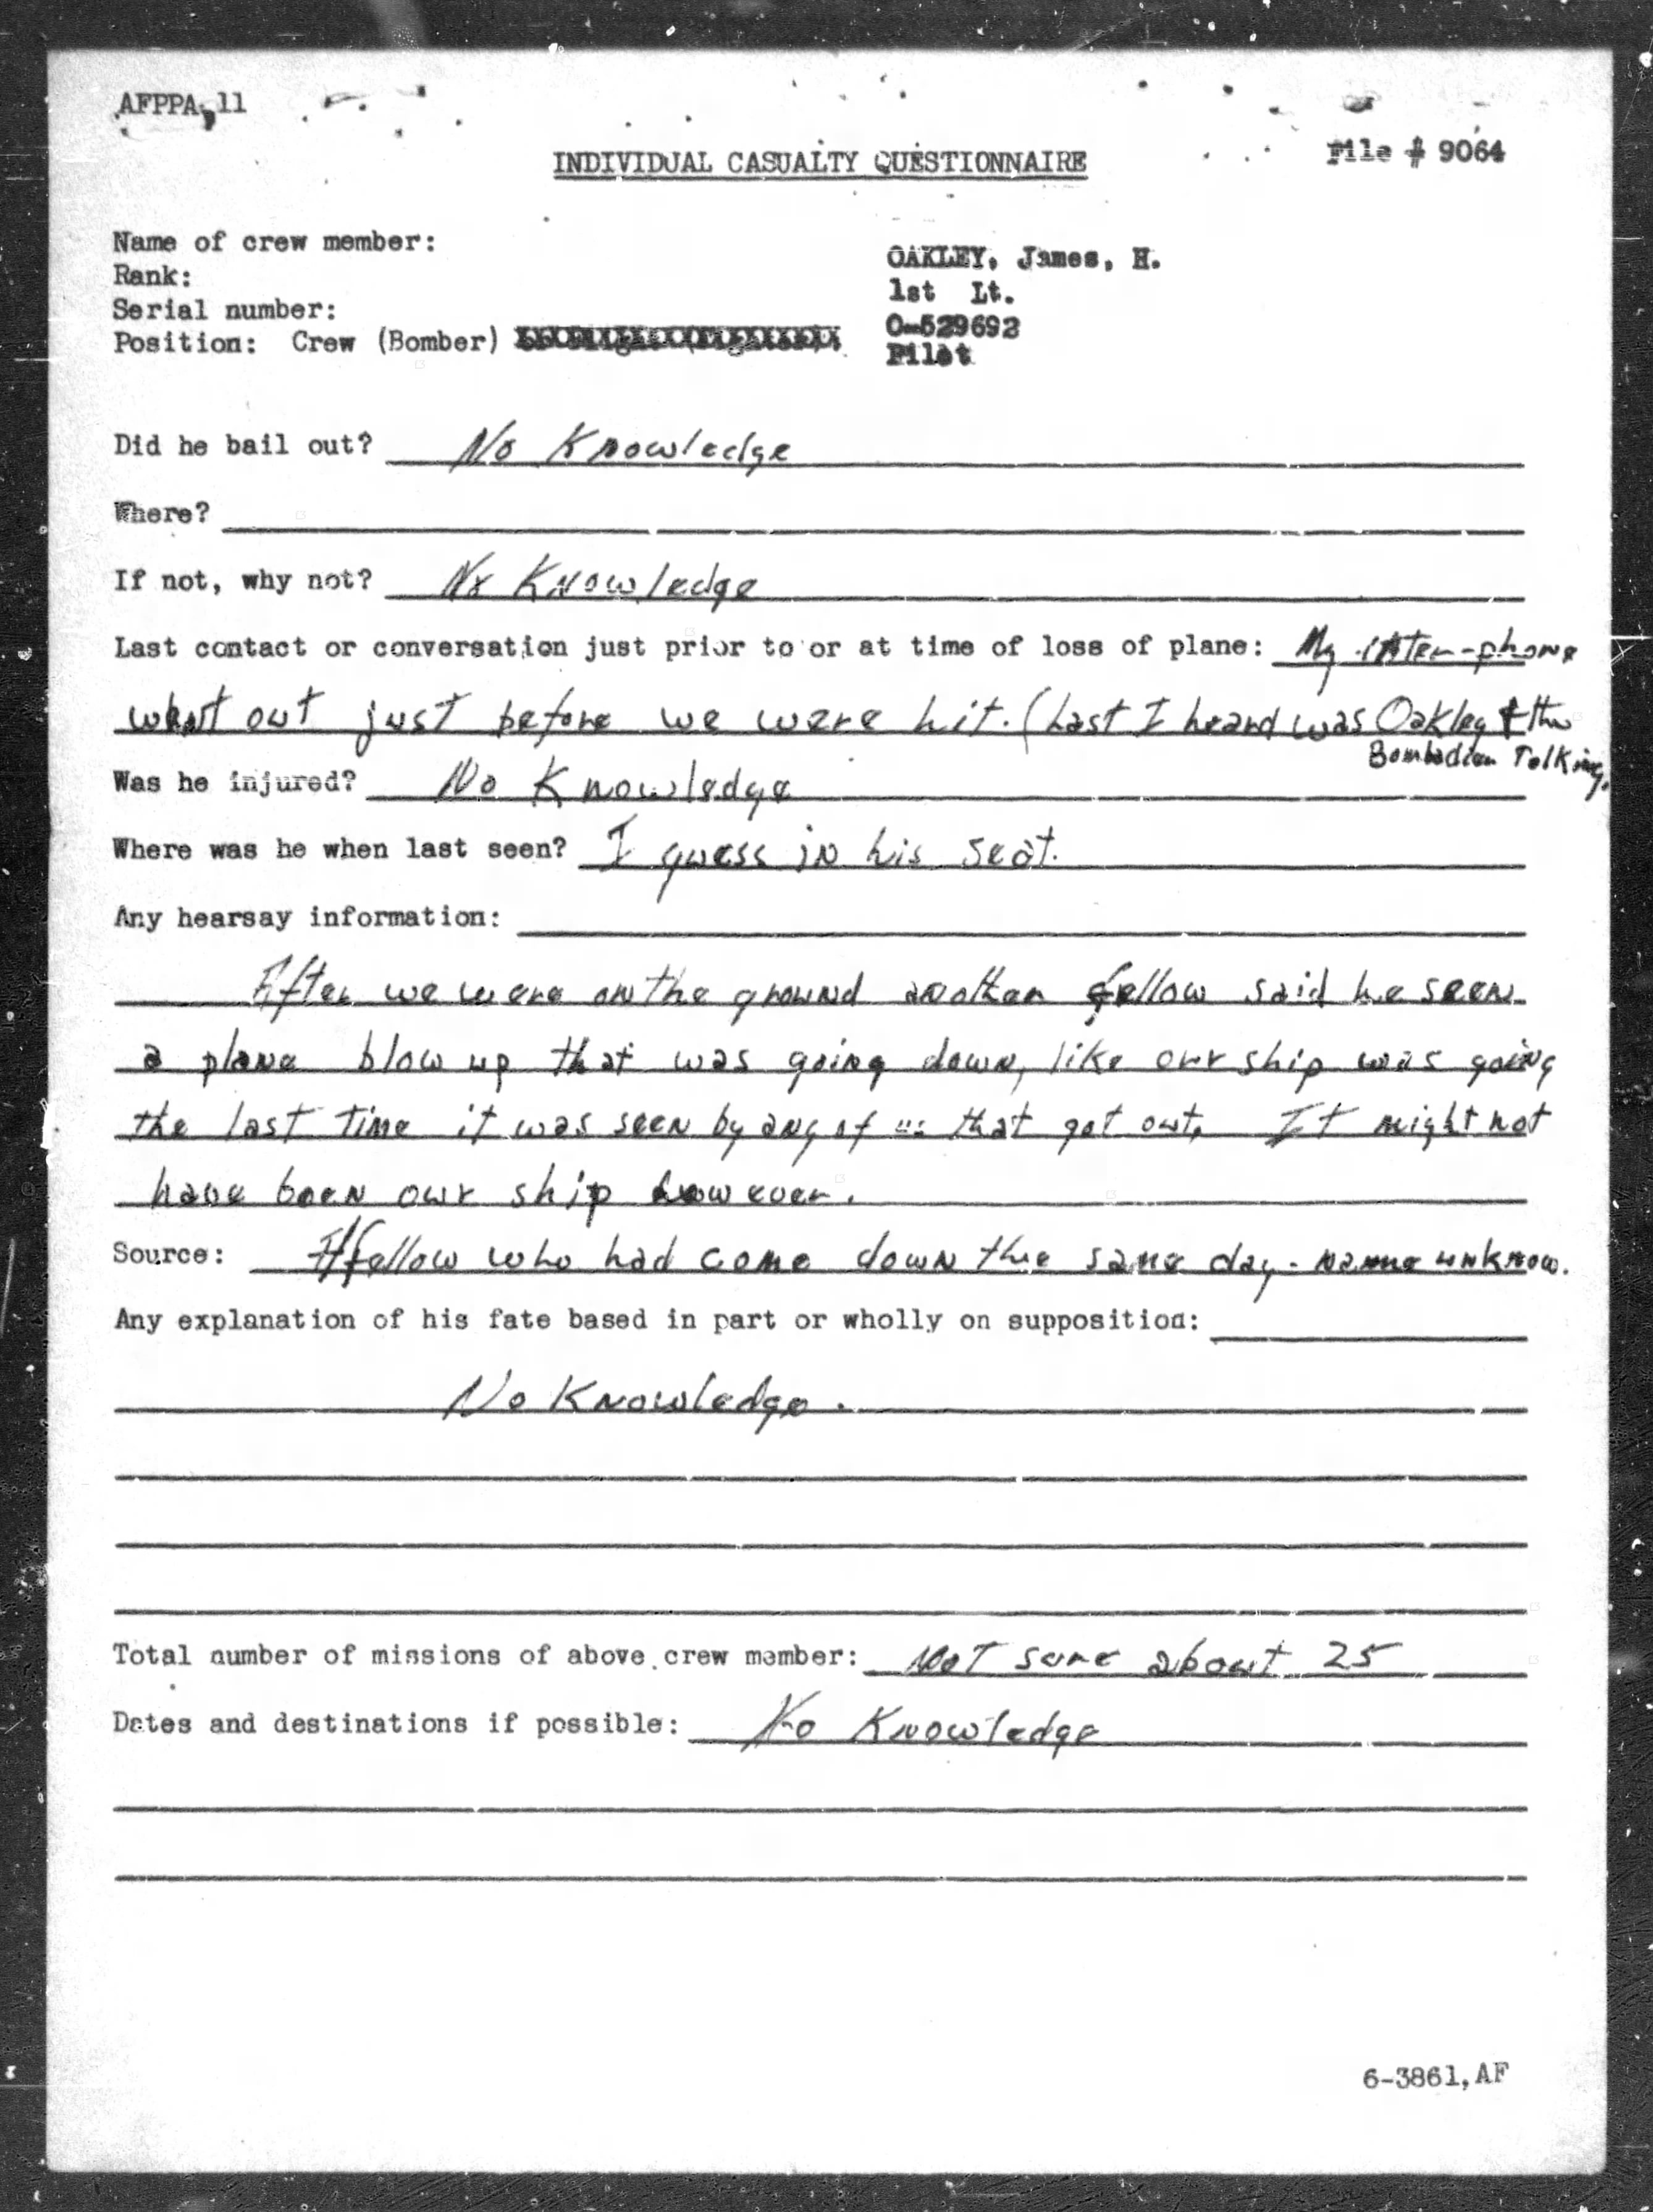 AFPPA-11
INDIVIDUAL CASUALTY QUESTIONNAIRE
File # 9064
Name of crew member: OAKLEY, James, H.
Rank: 1st Lt.
Serial number: O-529692
Position: Crew (Bomber) Pilot
Did he bail out? No Knowledge
Where?
If not, why not? No Knowledge
Last contact or conversation just prior to or at time of loss of plane: My inter-phone
went out just before we were hit. (Last I heard was Oakley & the
Bombadier Talking.
Was he injured? No Knowledge
Where was he when last seen? I guess in his seat.
Any hearsay information:
After we were on the ground another fellow said he seen
a plane blow up that was going down, like our ship was going
the last time it was seen by any of us that got out. It might not
have been our ship however.
Source: A fellow who had come down the same day - name unknow.
Any explanation of his fate based in part or wholly on supposition:
No Knowledge.
Total number of missions of above crew member: Not sure about 25
Dates and destinations if possible: No Knowledge
6-3861, AF